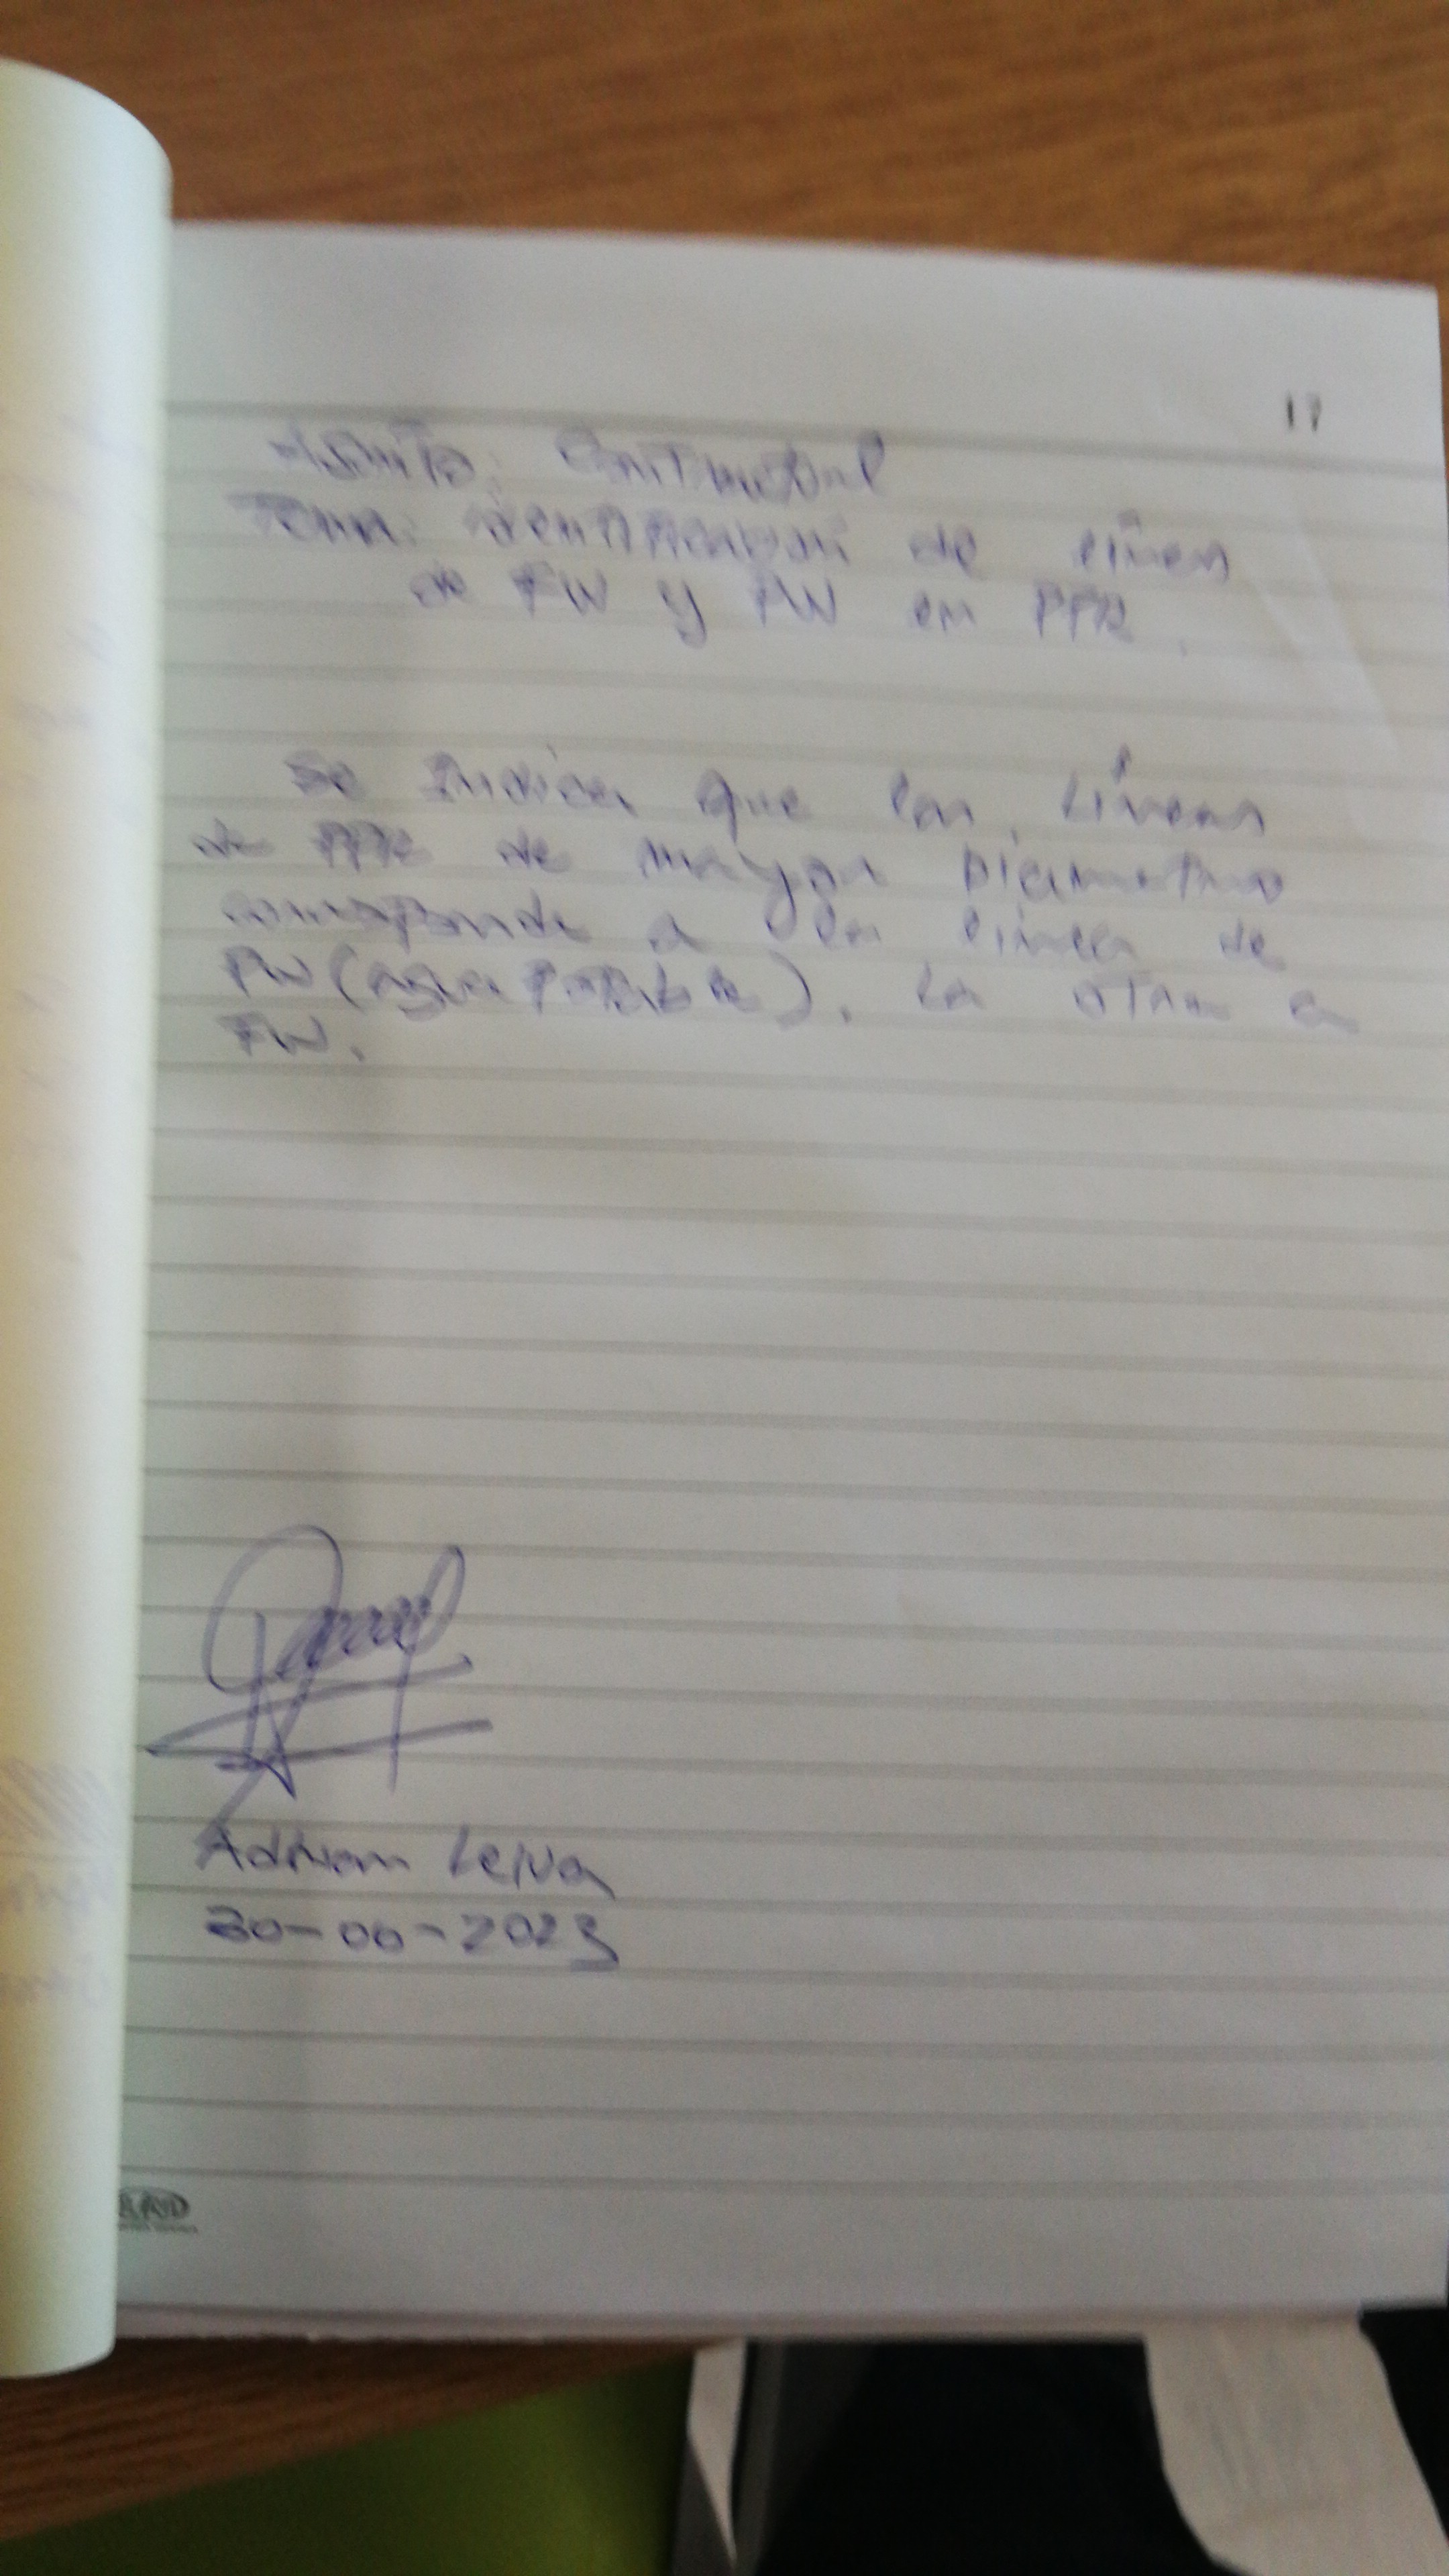 17
Asunto: Contractual
Tema: identificación de línea
de FW y PW en PPR.
Se indica que la Línea
de PPR de mayor Diametro
corresponde a la línea de
PW (agua Potable). La otra a
FW.
Adrian Leiva
2023